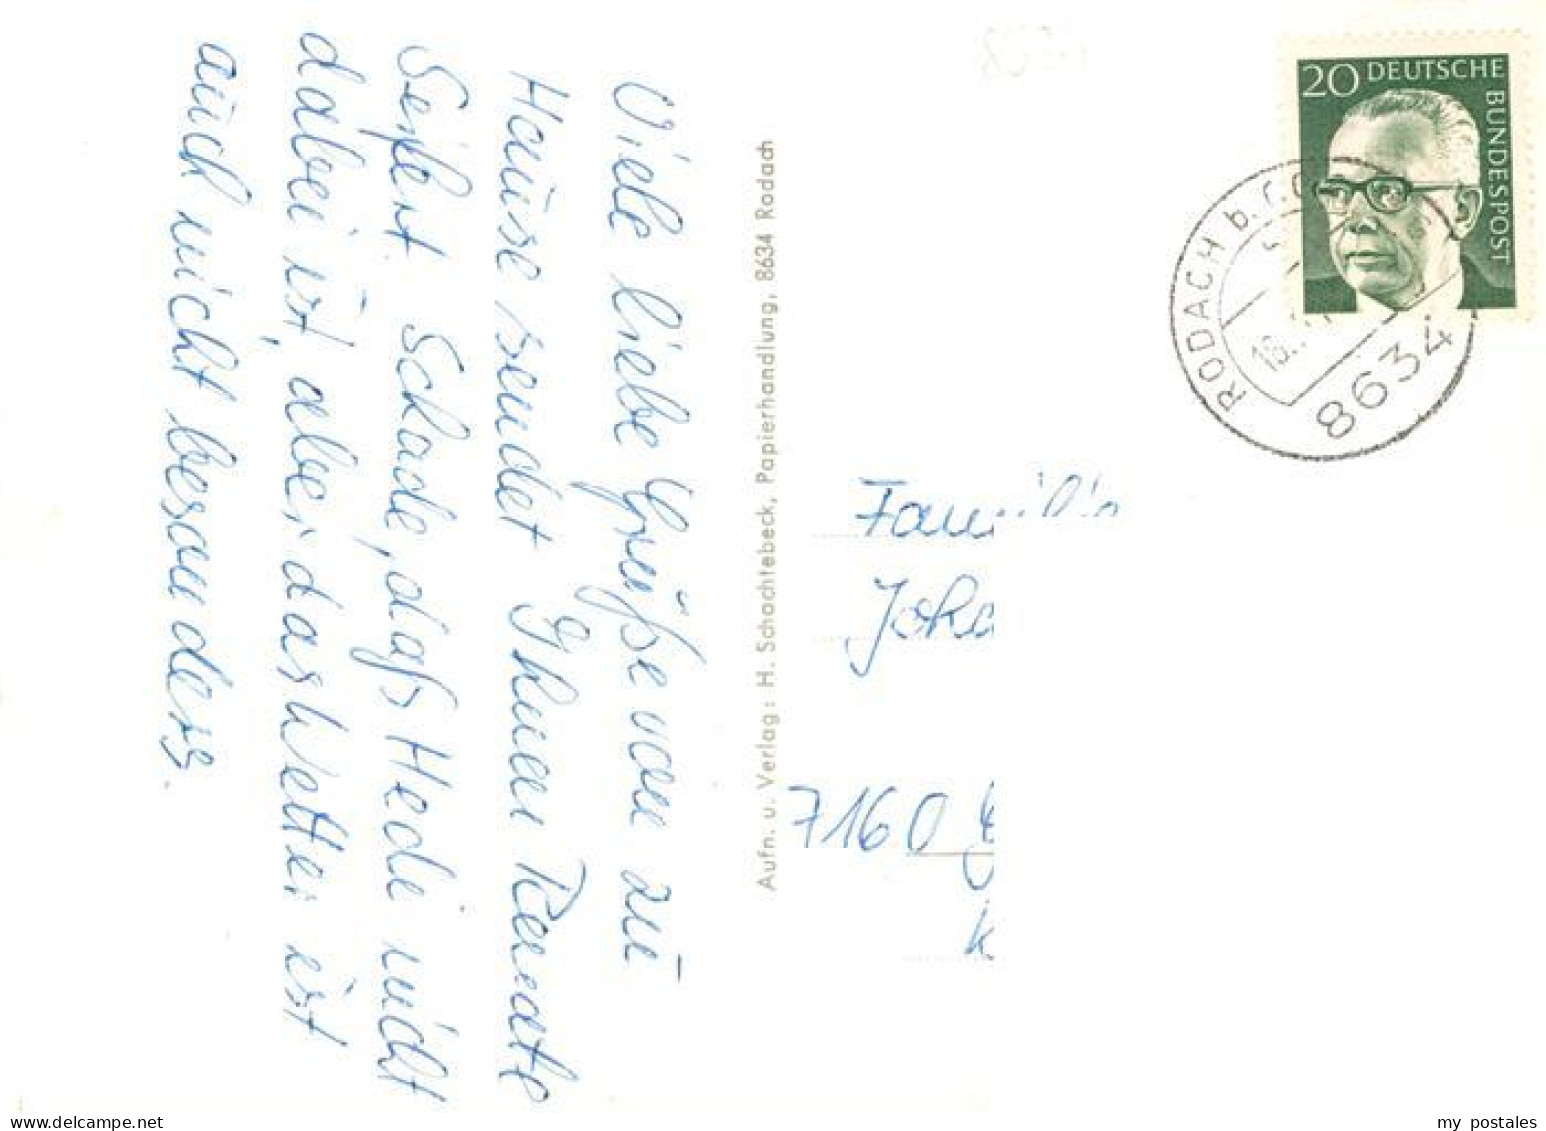 Viele liebe Grüße von zu
Hause sendet Ihnen Renate
Seifert. Schade, daß Hede nicht
dabei ist, aber das Wetter ist
auch nicht besonders.
Aufn. u. Verlag: H. Schachtebeck, Papierhandlung, 8634 Rodach
20 DEUTSCHE
BUNDESPOST
RODACH b. r. C
16.
8634
Familie
Joha
7160 G
K
my postales